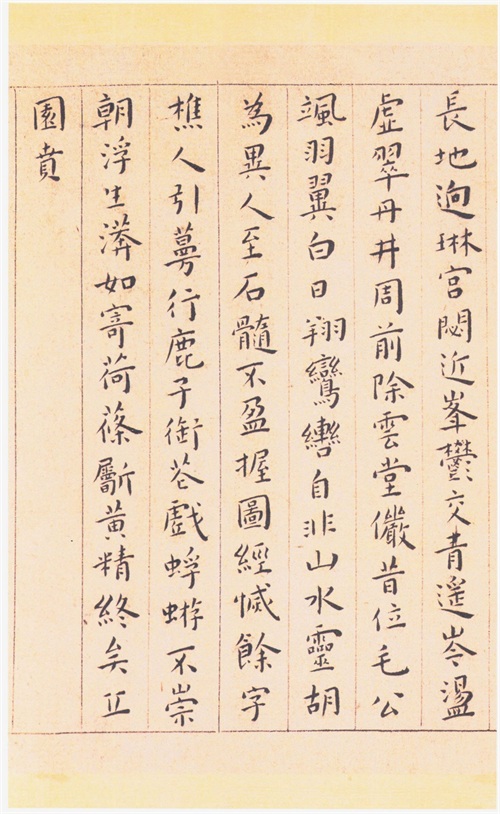 長地迥琳宫閟近峯鬱交青遥岑盪
虚翠丹井周前除雲堂儼昔位毛公
颯羽翼白日翔鸞轡自非山水靈胡
為異人至石髓不盈握圖經慽餘字
樵人引蕚行鹿子銜花戲蜉蝣不崇
朝浮生漭如寄荷蓧斸黄精終矣丘
園賁